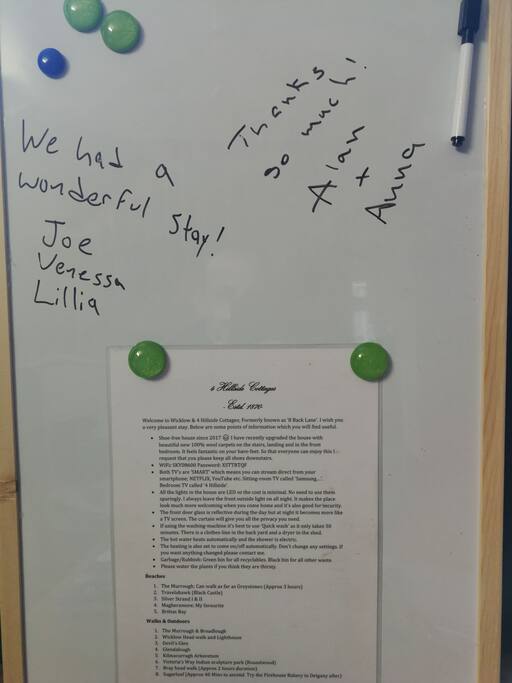 We had a
wonderful stay!
Joe
Venessa
Lillia
Thanks
so much!
Alan
+
Anna
4 Hillside Cottages
- Estd. 1870-
Welcome to Wicklow & 4 Hillside Cottages; Formerly known as '8 Back Lane'. I wish you
a very pleasant stay. Below are some points of information which you will find useful.
• Shoe-free house since 2017 😊 I have recently upgraded the house with
beautiful new 100% wool carpets on the stairs, landing and in the front
bedroom. It feels fantastic on your bare-feet. So that everyone can enjoy this I
request that you please keep all shoes downstairs.
• WiFi: SKYD8600 Password: XSTTBTQF
• Both TV's are 'SMART' which means you can stream direct from your
smartphone; NETFLIX, YouTube etc. Sitting-room TV called 'Samsung...'
Bedroom TV called '4 Hillside'.
• All the lights in the house are LED so the cost is minimal. No need to use them
sparingly. I always leave the front outside light on all night. It makes the place
look much more welcoming when you come home and it's also good for security.
• The front door glass is reflective during the day but at night it becomes more like
a TV screen. The curtain will give you all the privacy you need.
• If using the washing-machine it's best to use 'Quick wash' as it only takes 50
minutes. There is a clothes-line in the back yard and a dryer in the shed.
• The hot water heats automatically and the shower is electric.
• The heating is also set to come on/off automatically. Don't change any settings. If
you want anything changed please contact me.
• Garbage/Rubbish: Green bin for all recyclables. Black bin for all other waste.
• Please water the plants if you think they are thirsty.
Beaches
1. The Murrough: Can walk as far as Greystones (Approx 3 hours)
2. Travelahawk (Black Castle)
3. Silver Strand I & II
4. Magheramore: My favourite
5. Brittas Bay
Walks & Outdoors
1. The Murrough & Broadlough
2. Wicklow Head walk and Lighthouse
3. Devil's Glen
4. Glendalough
5. Kilmacurragh Arboretum
6. Victoria's Way Indian sculpture park (Roundwood)
7. Bray head walk (Approx 2 hours duration)
8. Sugarloaf (Approx 40 Mins to ascend. Try the Firehouse Bakery in Delgany after)